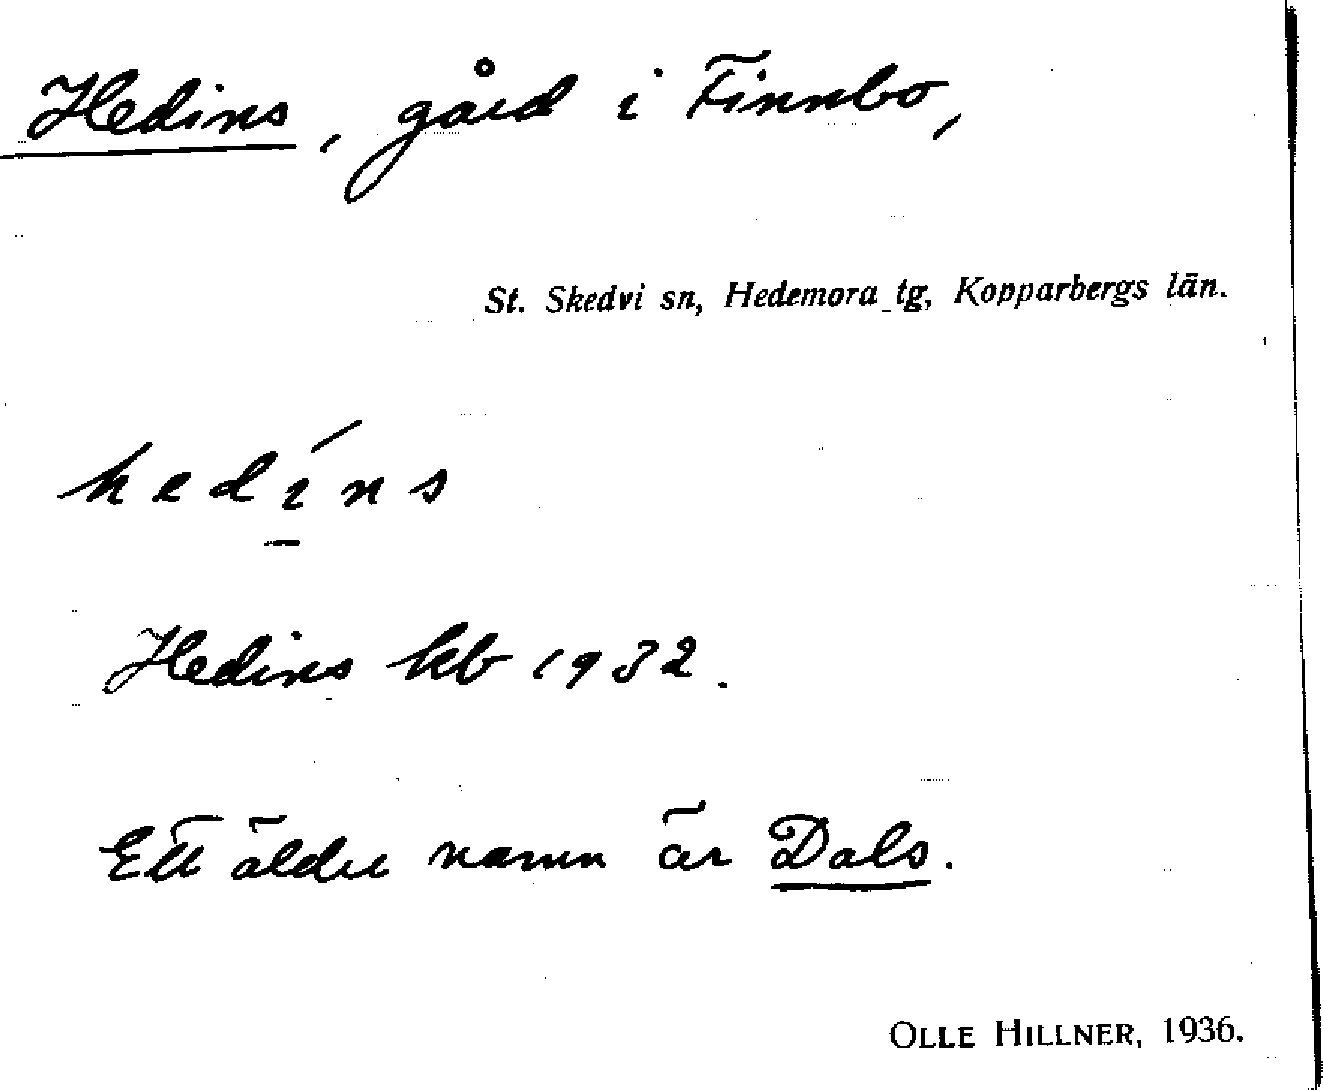 Hedins, gård i Finnbo,
St. Skedvi sn, Hedemora tg, Kopparbergs län.
hedíns
Hedins kb 1932.
Ett äldre namn är Dals.
OLLE HILLNER, 1936.